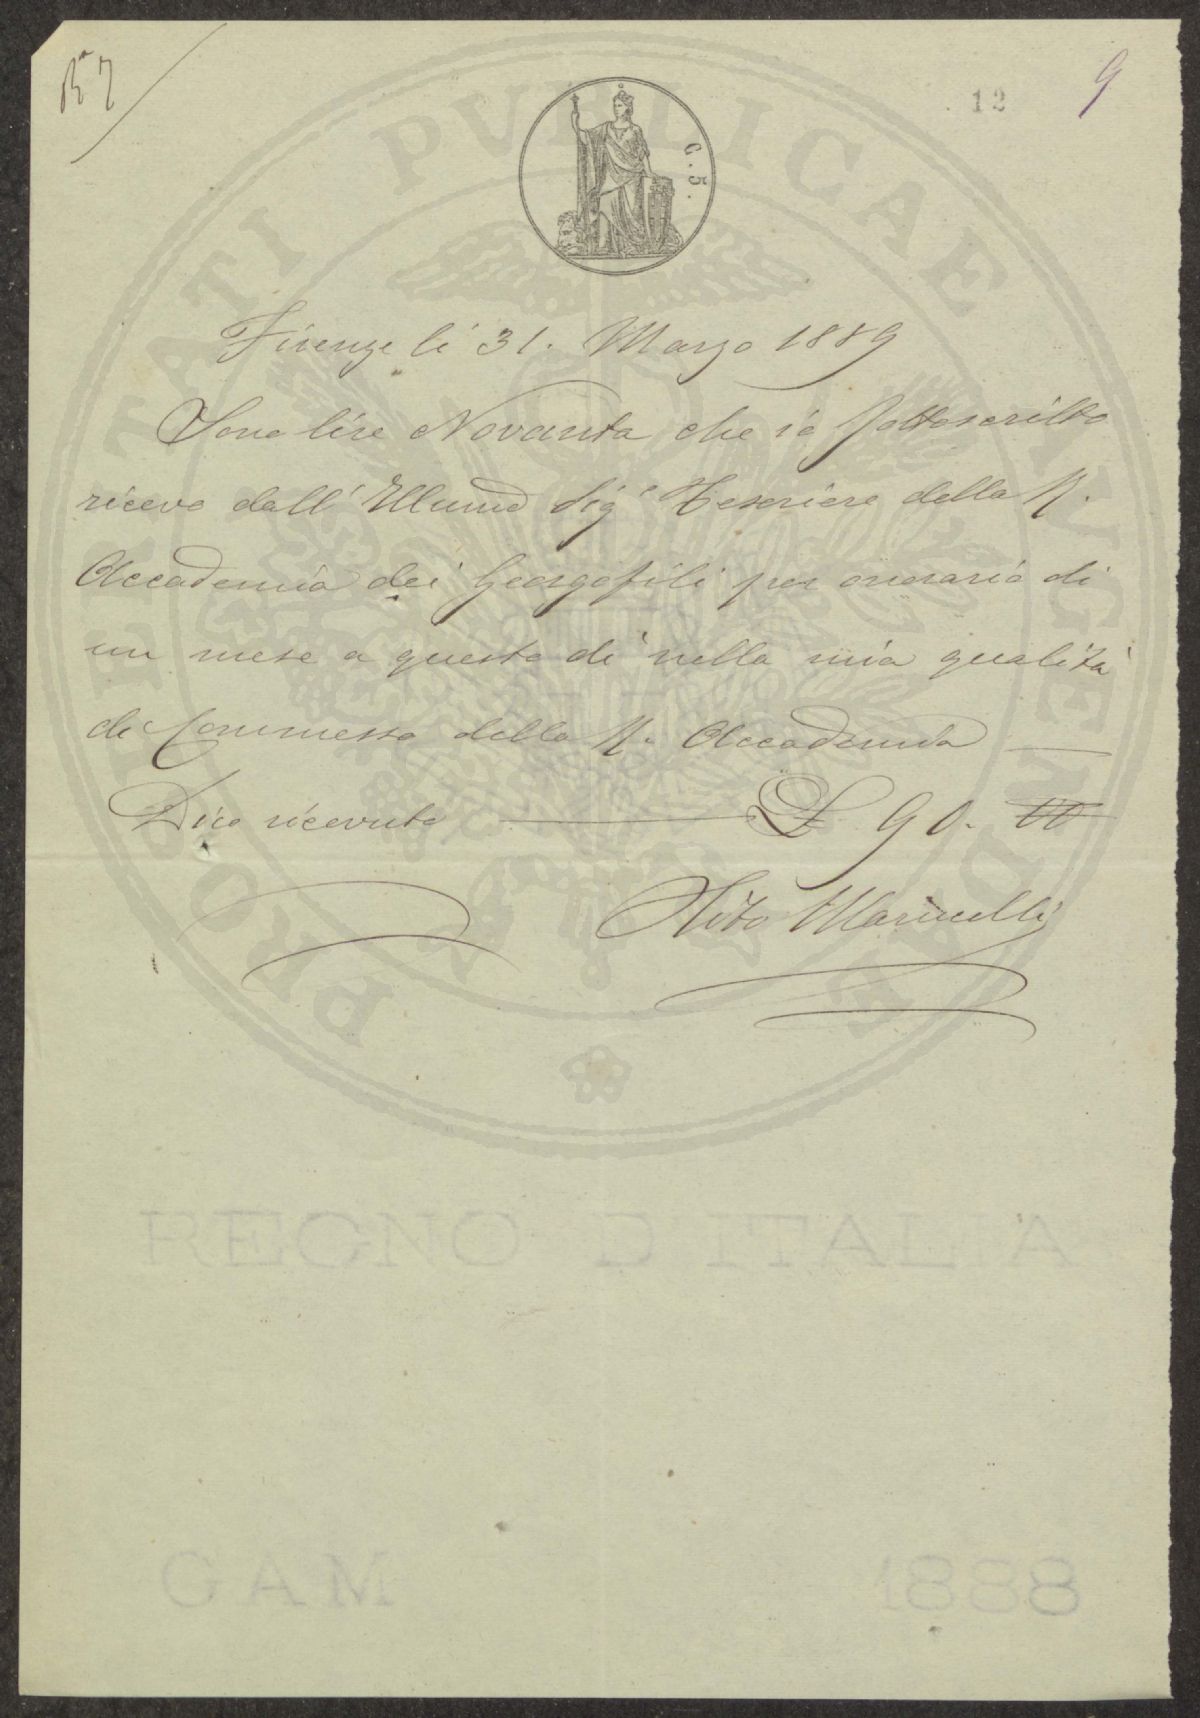 12
9
C. 5.
Firenze li 31. Marzo 1889
Sono lire Novanta che io sottoscritto
ricevo dall' Illumo Sigr Tesoriere della R.
Accademia dei Georgofili per onorario di
un mese a questo dì nella mia qualità
di Commesso della R. Accademia
Dico ricevute L 90. 00
PROPRIETATI PVBLICAE AVGENDAE
REGNO D'ITALIA
GAM 1888